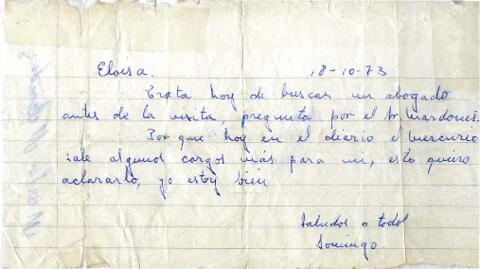 Eloisa. 18-10-73
Trata hoy de buscar un abogado
antes de la visita, pregunta por el Sr Mardones.
Por que hoy en el diario el Mercurio
sale algunos cargos más para mi, esto quiero
aclararlo, yo estoy bien
Saludos a todos
Domingo